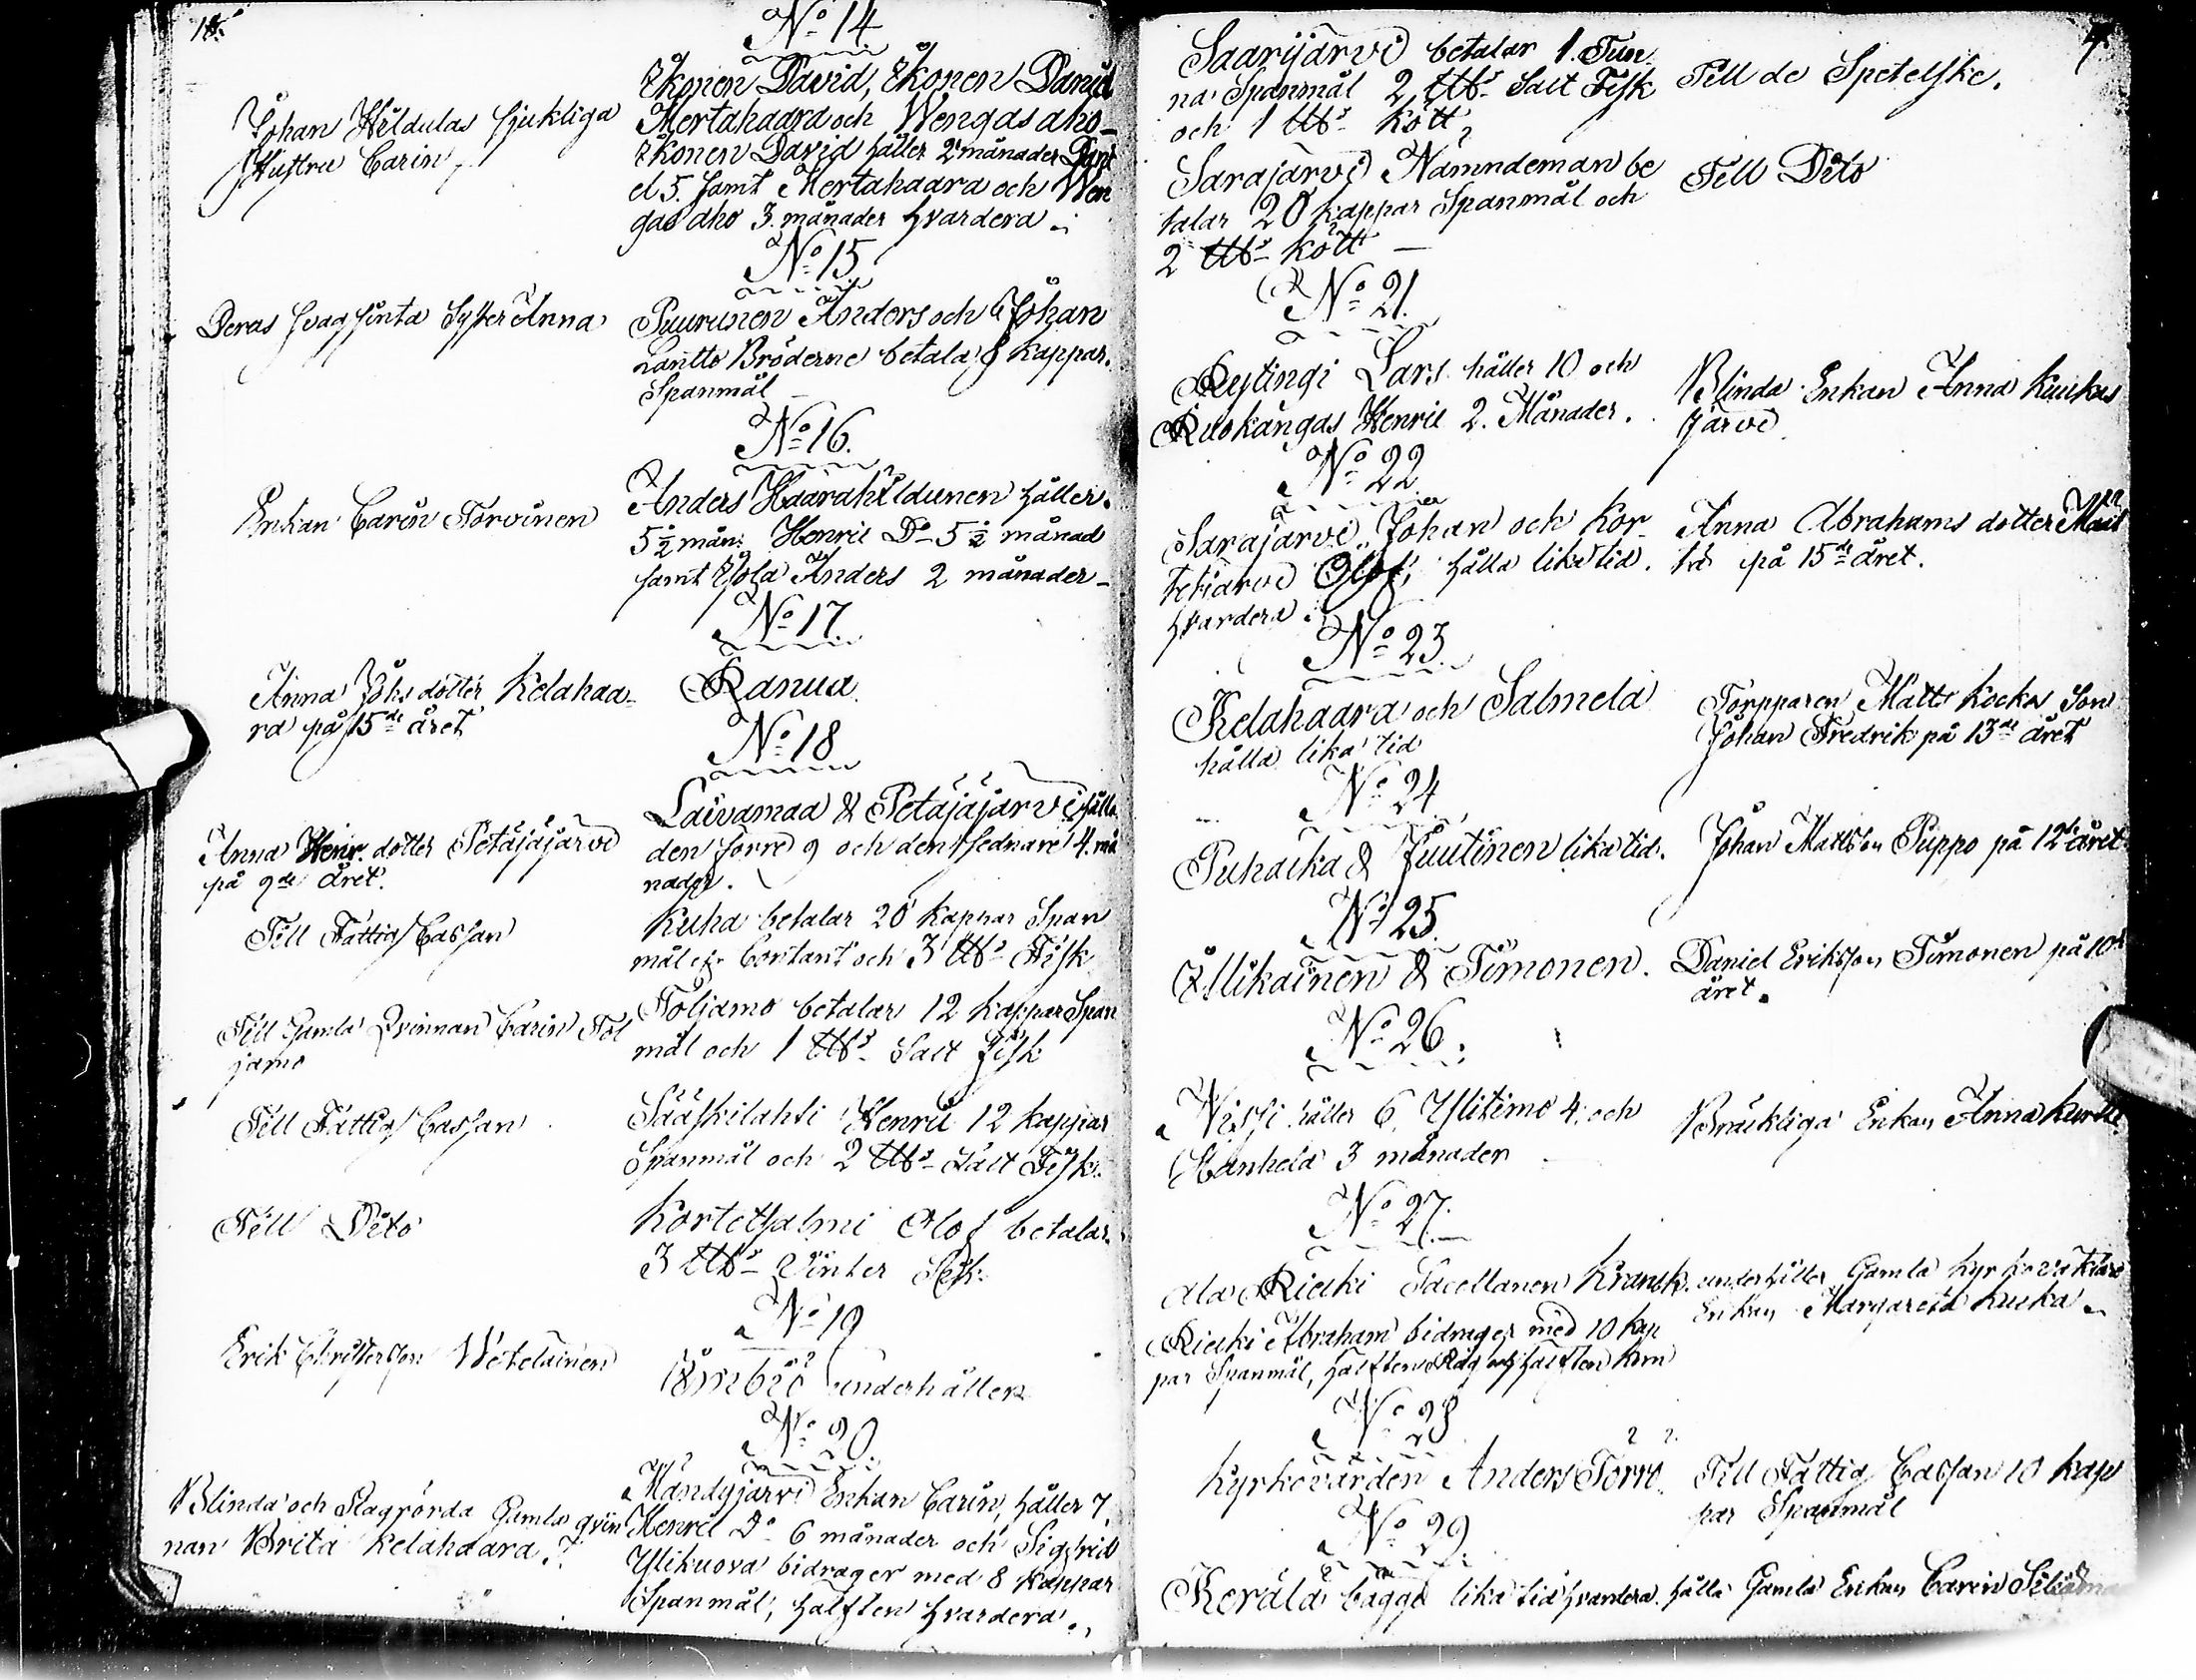 18.
No 14
Johan Hildulas sjukliga
Hustru Carin,
Ikonen David, Ikonen Daniel
Mertahaara och Wengasaho
Ikonen David håller 2 månader Dani
el 5. samt Mertahaara och Wen
gas aho 3. månader hvardera
No 15
Deras svagsinta Syster Anna
Puurunen Anders och Johan
Lantto Bröderne betala 8 kappar
Spanmål
No 16.
Enkan Carin Torvinen
Anders Haarahildunen håller
5½ mån: Henric Do 5½ månad
samt Anders 2 månader
No 17.
Anna Johs dotter Kelahaa-
ra på 15de året
Ranua
No 18
Anna Henr. dotter Petäjäjärvi
på 9de året.
Laivamaa & Petäjäjärvi hålla
den förre 9 och den sednare 4. må
nader.
Till Fattig Cassan
Kuha betalar 20 kappar Span
mål Contant och 3 ℔s Fisk
Till Gamla Qvinnan Carin Tol
jamo
Toljamo betalar 12 kappar Span
mål och 1 ℔s Salt fisk
Till Fattig Cassan
Sääskilahti Henric 12 kappar
Spanmål och 2 ℔s Salt Fisk
Till Dito
Kortetsalmi Olof betalar
3 ℔s Vinter Fisk
No 19
Erik Christersson Wetelainen
Simbrö underhåller
No 20.
Blinda och Slagrörda Gamla qvin
nan Brita Kelahaara.
Mändyjärvi Enkan Carin, håller 7,
Henric Do 6 månader och Sigfrid
Ylikuova bidrager med 8 kappar
Spanmål, hälften hvardera.
Saarijärvi betalar 1. Tun
na Spanmål 2 ℔s Salt Fisk
och 1 ℔s kött
Till de Spetelske.
Sarajärvi Nämndeman be
talar 20 kappar Spanmål och
2 ℔s kött
Till Dito
No 21.
Kytingi Lars håller 10 och
Ruokangas Henric 2. Månader.
Blinda Enkan Anna Kuukas
järvi
No 22
Sarajärvi Johan och Kor
tetjärvi Olof, hålla lika tid
hvardera
Anna Abrahams dotter
på 15de året.
No 23.
Kelahaara och Salmela
hålla lika tid
Torpparen Matts Kockos Son
Johan Fredrik på 13de året
No 24
Puhaika & Juutinen lika tid.
Johan Mattsson Puppo på 12te året
No 25.
Illikainen & Timonen.
Daniel Eriksson Timonen på 10de
året.
No 26.
Wissi håller 6. Ylitimo 4. och
Wanhela 3 månader
Bräckliga Enkan Anna
No 27.
Ala Riekki Sacellanen Kranck. underhåller Gamla kyrkoväktare
Enkan Margareta Kuuka
Riekki Abraham bidrager med 10 kap
par Spanmål, hälften Råg och hälften korn
No 28
Kyrkovärden Anders Törrö.
Till Fattig Cassan 10 kap
par Spanmål
No 29.
Kerälä bägge lika tid hvardera. hålla Gamla Enkan Carin